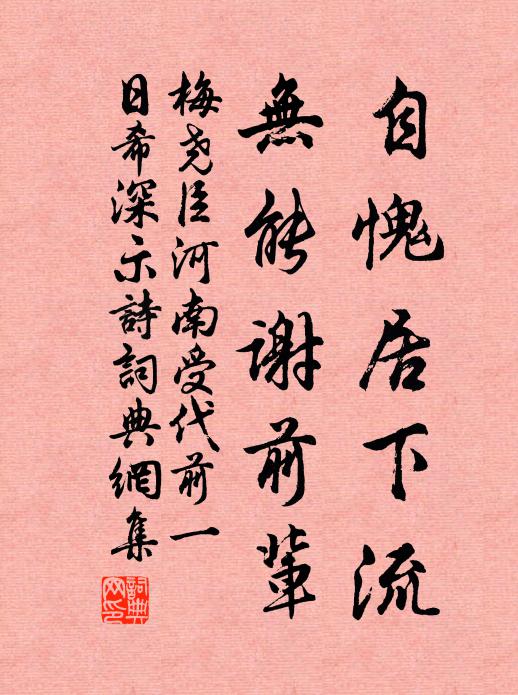 自愧居下流
無能謝前輩
梅堯臣河南受代前一
日希深示詩詞典網集
詞典网印